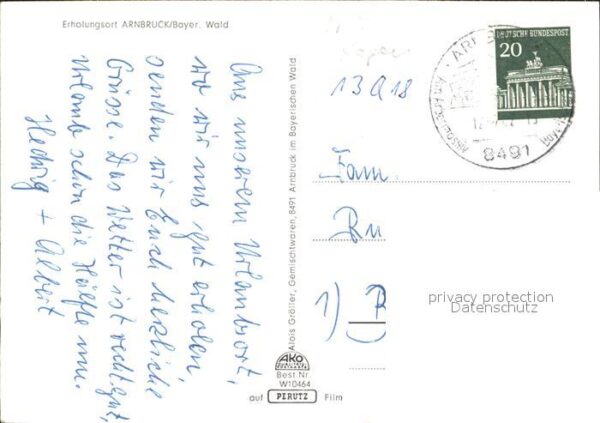 Erholungsort ARNBRUCK/Bayer. Wald
Aus unserem Urlaubsort,
wo wir uns gut erholen,
senden wir Euch herzliche
Grüsse. Das Wetter ist recht gut,
Urlaub schon die Hälfte um.
Hedwig + Albert
Alois Größer, Gemischtwaren, 8491 Arnbruck im Bayerischen Wald
AKO
Best. Nr.
W10464
auf PERUTZ Film
13 a 18
DEUTSCHE BUNDESPOST
20
8491
Fam.
Ru
1) P
privacy protection
Datenschutz